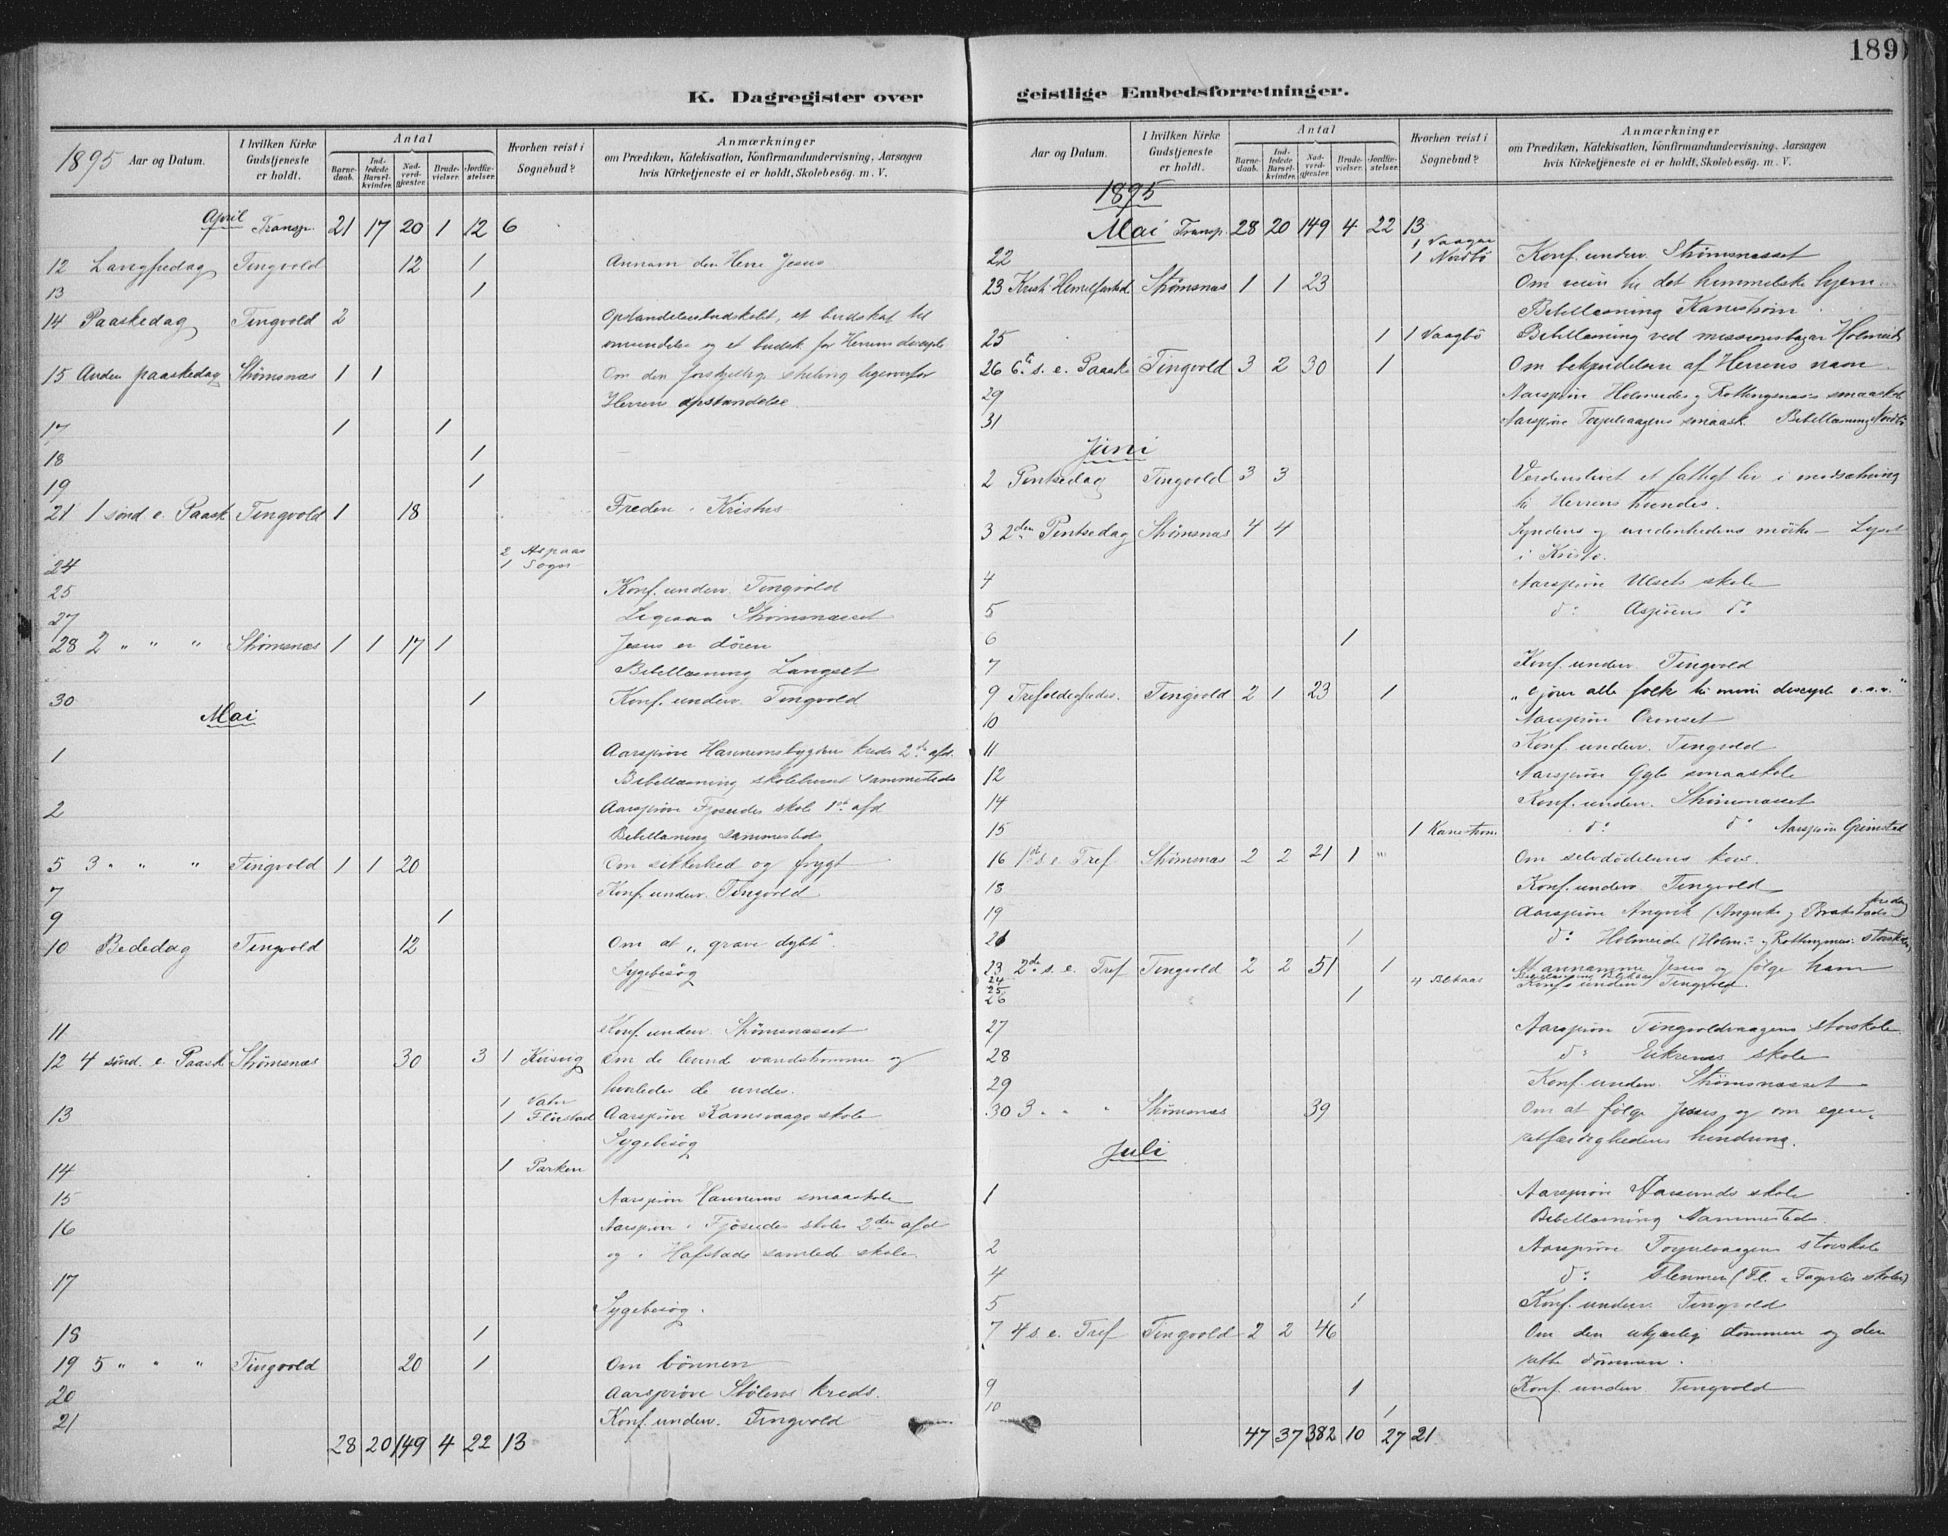 189
K. Dagregister over geistlige Embedsforretninger.
1895 Aar og Datum.
I hvilken Kirke Gudstjeneste er holdt.
Antal
Barnedaab.
Indledede Barselkvinder.
Nadverdgjester.
Brudevielser.
Jordfæstelser.
Hvorhen reist i Sognebud?
Anmærkninger
om Prædiken, Katekisation, Konfirmandundervisning, Aarsagen
hvis Kirketjeneste ei er holdt, Skolebesøg. m. V.
April Transp. 21 17 20 1 12 6
12 Langfredag Tingvold 12 1 Annam den Herre Jesus
13 1
14 Paaskedag Tingvold 2 Opstandelsesbudskabet, et budskab til
omvendelse og et budsk. for Herrens disciple
15 Anden paaskedag Strømsnæs 1 1 Om den forskjellige stilling ligeoverfor
Herrens opstandelse
17 1 1
18 1
19 1
21 1 sønd e. Paask Tingvold 1 18 Freden i Kristus
2 Aspaas
24 1 Sogn
25 Konf. underv. Tingvold
27 Ligesaa Strømsnæsset
28 2 " " " Strømsnæs 1 1 17 1 Jesus er døren
Bibellæsning Langset
30 1 Konf. underv. Tingvold
Mai
1 Aarsprøve Hannemsbygden kreds 2de afd.
Bibellæsning skolehuset sammesteds
2 Aarsprøve Fjøseides skole 1ste afd
Bibellæsning sammesteds
5 3 " " " Tingvold 1 1 20 Om sikkerhed og frygt
7 Konf. underv. Tingvold
9 1
10 Bededag Tingvold 12 Om at „grave dybt".
Sygebesøg
11 Konf. underv. Strømsnæsset
12 4 sønd. e. Paask Strømsnæs 30 3 1 Kvisvig Om de levende vandstrømme og
hvorledes de undes.
1 Vatn
13 1 Flustad Aarsprøve Kamsvaags skole
Sygebesøg
14 1 Parken
15 Aarsprøve Hannems smaaskole
16 Aarsprøve i Fjøseides skoles 2den afd
og i Hafstads samlede skole
17
Sygebesøg.
18 1
19 5 " " " Tingvold 20 1 Om bønnen
20 Aarsprøve Stølens kreds.
21 Konf. underv. Tingvold
28 20 149 4 22 13
Aar og Datum.
I hvilken Kirke Gudstjeneste er holdt.
Antal
Barnedaab.
Indledede Barselkvinder.
Nadverdgjester.
Brudevielser.
Jordfæstelser.
Hvorhen reist i Sognebud?
Anmærkninger
om Prædiken, Katekisation, Konfirmandundervisning, Aarsagen
hvis Kirketjeneste ei er holdt, Skolebesøg. m. V.
1895
Mai Transp. 28 20 149 4 22 13
1 Vaagen
22 1 Nordbø Konf. underv. Strømsnæsset
23 Krist Himelfartsd Strømsnæs 1 1 23 Om veien til det himmelske hjem
Bibellæsning Kanestrøm
25 1 1 Vaagbø Bibellæsning ved missionsdagen Holmeide
26 6te s. e. Paask Tingvold 3 2 30 1 Om bekjendelsen af Herrens navn
29 Aarsprøve Holmeides og Rottingsnæs's smaaskole
31 Aarsprøve Torjulvaagens smaask. Bibellæsning Nordbø
Juni
2 Pintsedag Tingvold 3 3 Verdenslivet et fattigt liv i modsætning
til Herrens
3 2den Pintsedag Strømsnæs 4 4 Syndens og mørke – Lyset
i Kristo.
4 Aarsprøve Ulsets skole
5 do: Aspøens do
6 1
7 Konf. underv. Tingvold
9 Trefoldighedss. Tingvold 2 1 23 1 „Gjører alle folk til mine disciple o.s.v."
10 Aarsprøve Ormset
11 Konf. underv. Tingvold
12 Aarsprøve Gyls smaaskole
14 Konf. underv. Strømsnæsset
15 1 Kanestrøm do: do: Aarsprøve Grimstad
16 1ste s. e. Tref Strømsnæs 2 2 21 1 " Om selvdødelsens kors.
18 Konf. underv. Tingvold
19 Aarsprøve Angvik (Angviks og Brakstads kreds)
21 1 do: Holmeide (Holm: og Rottingsnæs: storskole)
23 2de s. e. Tref Tingvold 2 2 51 1 At annamme Jesus og følge ham
24 4 Blekaas Bibellæsning Blekaas
25 Konf. underv. Tingvold.
26 1
27 Aarsprøve Tingvoldvaagens storskole
28 do: Eikrems skole
29 Konf. underv. Strømsnæsset
30 3 " " " Strømsnæs 39 Om at følge Jesus, og om egen-
retfærdighedens hindring.
Juli
1 Aarsprøve Aarsunds skole
Bibellæsning sammesteds
2 Aarsprøve Torjulvaagens storskole
4 do: Flemmen (Fl. – skoler)
5 1 Konf. underv. Tingvold
7 4 s. e. Tref Tingvold 2 2 46 Om den ukjærlig dømmen og den
rette dømmen.
9 1 Konf. underv. Tingvold
10 1
47 37 382 10 27 21